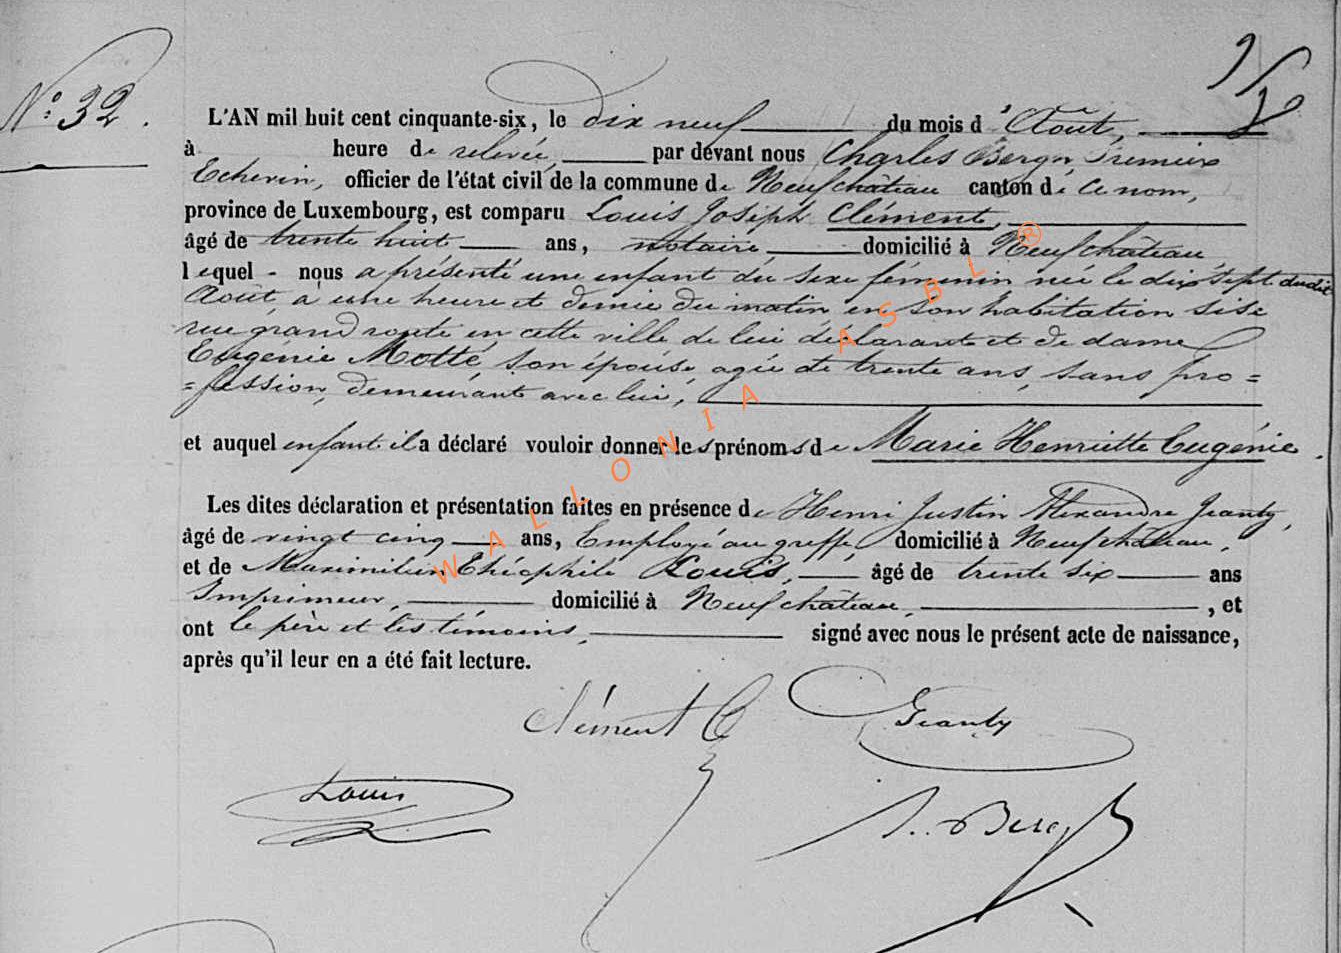 N.° 32.
L'AN mil huit cent cinquante-six, le dix neuf du mois d'Août,
à heure de relevée, par devant nous Charles Bergh Premier
Echevin, officier de l'état civil de la commune de Neufchâteau canton de ce nom,
province de Luxembourg, est comparu Louis Joseph Clément,
âgé de trente huit ans, notaire domicilié à Neufchâteau,
lequel - nous a présenté une enfant du sexe féminin née le dix sept dudit
Août à une heure et demie du matin en son habitation sise
rue grand route en cette ville de lui déclarant et de dame
Eugénie Motte, son épouse, agée de trente ans, sans pro=
=fession, demeurant avec lui,
et auquel enfant il a déclaré vouloir donner les prénoms de Marie Henriette Eugénie.
Les dites déclaration et présentation faites en présence de Henri Justin Alexandre Jeanty,
âgé de vingt cinq ans, Employé au greffe, domicilié à Neufchâteau,
et de Maximilien Théophile Louis, âgé de trente six ans
Imprimeur, domicilié à Neufchâteau, , et
ont le père et les témoins, signé avec nous le présent acte de naissance,
après qu'il leur en a été fait lecture.
Clément
Jeanty
Louis
WALLONIA ASBL ®